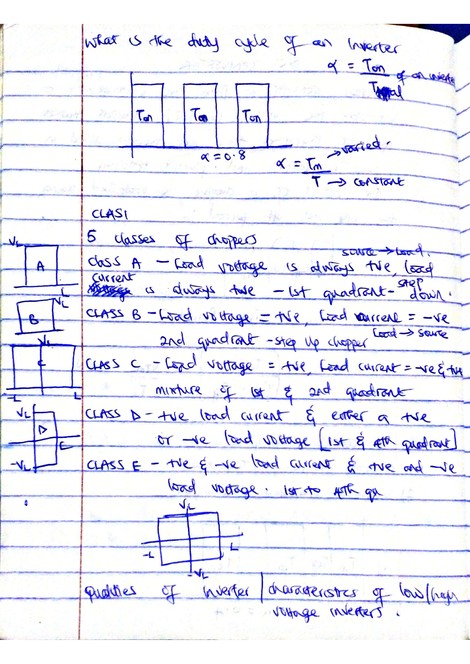 What is the duty cycle of an Inverter
α = Ton of an inverter
Total
Ton Ton Ton
α = 0.8
α = Ton → varied.
T → constant
CLAS1
5 classes of choppers
source → load.
Class A - Load voltage is always +ve, load
current is always +ve - 1st quadrant - step down.
CLASS B - Load voltage = +ve, Load current = -ve
2nd quadrant - step up chopper
Load → source
CLASS C - Load voltage = +ve, Load current = -ve & +ve
mixture of 1st & 2nd quadrant
CLASS D - +ve load current & either a +ve
or -ve load voltage [1st & 4th quadrant]
CLASS E - +ve & -ve load current & +ve and -ve
load voltage. 1st to 4th qu
VL
A
L
VL
B
VL
C
L
VL
D
E
-VL
VL
-L L
-VL
Qualities of Inverter | characteristics of low/high
voltage inverters.